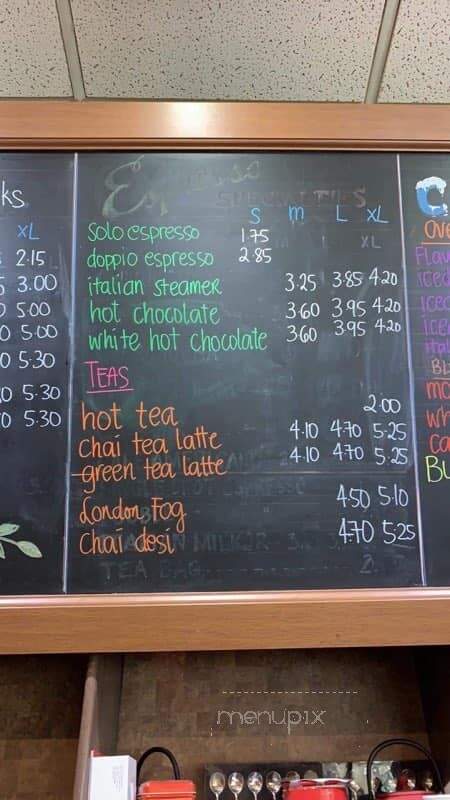 ks
Espresso
SPECIALTIES
S m L XL
XL
solo espresso 1.75
doppio espresso 2.85
italian steamer 3.25 3.85 4.20
hot chocolate 3.60 3.95 4.20
white hot chocolate 3.60 3.95 4.20
TEAS
hot tea 2.00
chai tea latte 4.10 4.70 5.25
green tea latte 4.10 4.70 5.25
London Fog 4.50 5.10
Chai desi 4.70 5.25
TEA BAG
XL
2.15
3.00
5.00
5.00
5.30
5.30
5.30
menupix